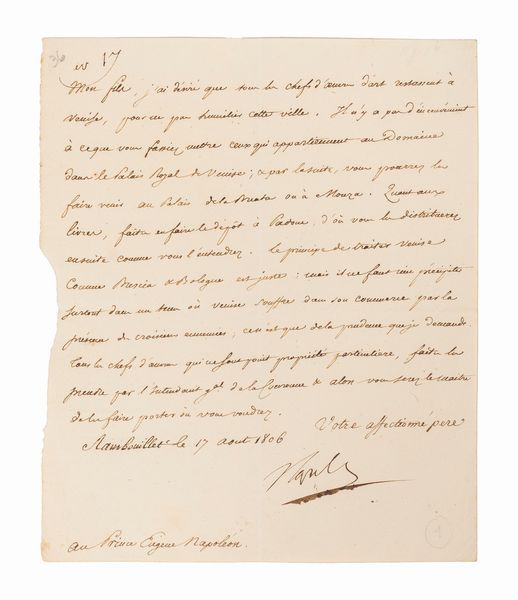 36
17
Mon fils, j'ai désiré que tous les chefs d'œuvre d'art restassent à
Venise, pour ne pas humilier cette ville. Il n'y a pas d'inconvénient
à ce que vous fassiez mettre ceux qui appartiennent au Domaine
dans le Palais Royal de Venise; & par la suite, vous pourrez les
faire venir au Palais de la Brera ou à Monza. Quant aux
livres, faites en faire le dépôt à Padoue, d'où vous les distribuerez
ensuite comme vous l'entendrez. Le principe de traiter Venise
Comme Brescia & Bologne est juste: mais il ne faut rien précipiter
surtout dans un tems où Venise souffre dans son commerce par la
présence des croisières ennemies; ce n'est que de la prudence que je demande.
Tous les chefs d'œuvre qui ne sont point propriété particulière, faites les
prendre par l'Intendant gal. de la Couronne & alors vous serez le maître
de les faire porter où vous voudrez.
Votre affectionné père
Rambouillet le 17 août 1806
Napole
au Prince Eugène Napoléon.
1